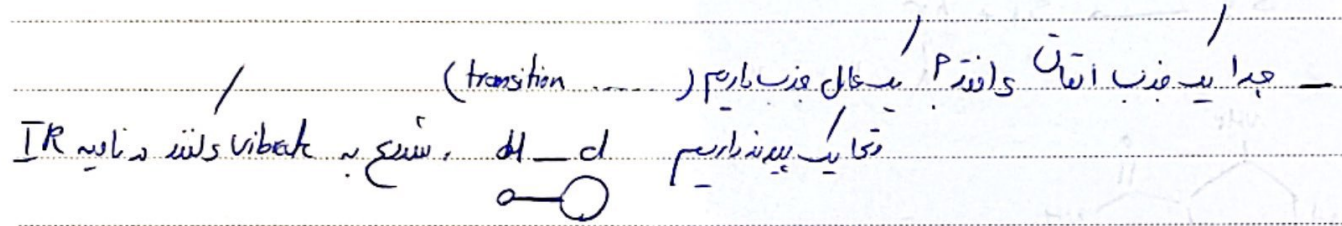 ـ چرا یک جذب اتفاق می‌افتد؟ یک عامل جذب داریم (transition ......)
وقتی یک پیوند داریم H_Cl ، شروع به vibrate می‌کنند در ناحیه IR